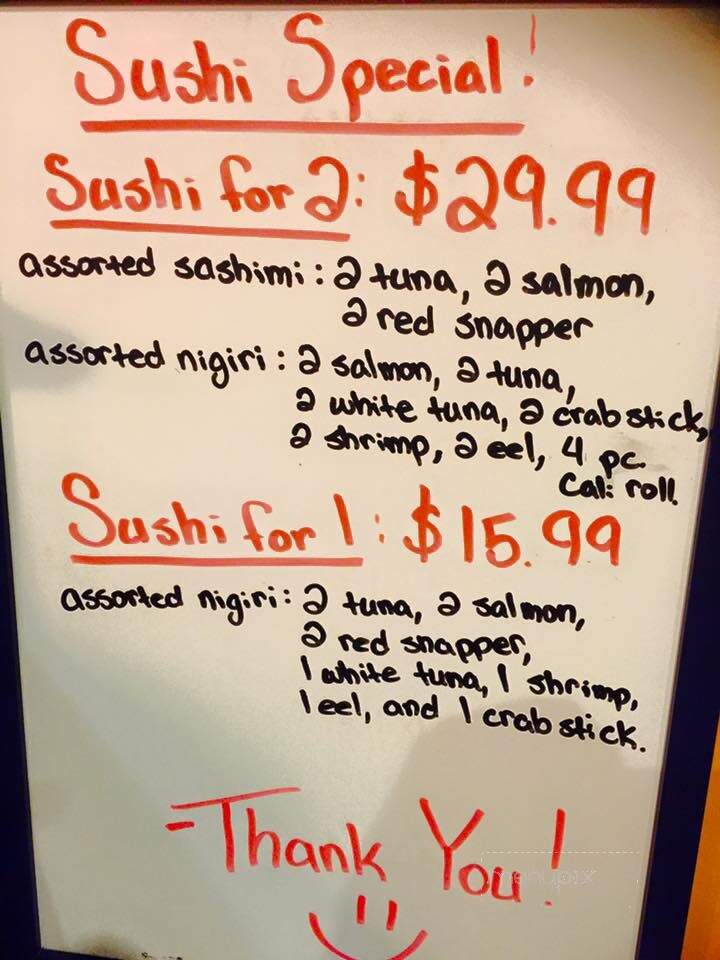 Sushi Special!
Sushi for 2: $29.99
assorted sashimi: 2 tuna, 2 salmon,
2 red snapper
assorted nigiri: 2 salmon, 2 tuna,
2 white tuna, 2 crab stick,
2 shrimp, 2 eel, 4 pc.
Cali roll.
Sushi for 1: $15.99
assorted nigiri: 2 tuna, 2 salmon,
2 red snapper,
1 white tuna, 1 shrimp,
1 eel, and 1 crab stick.
-Thank You!
menupix